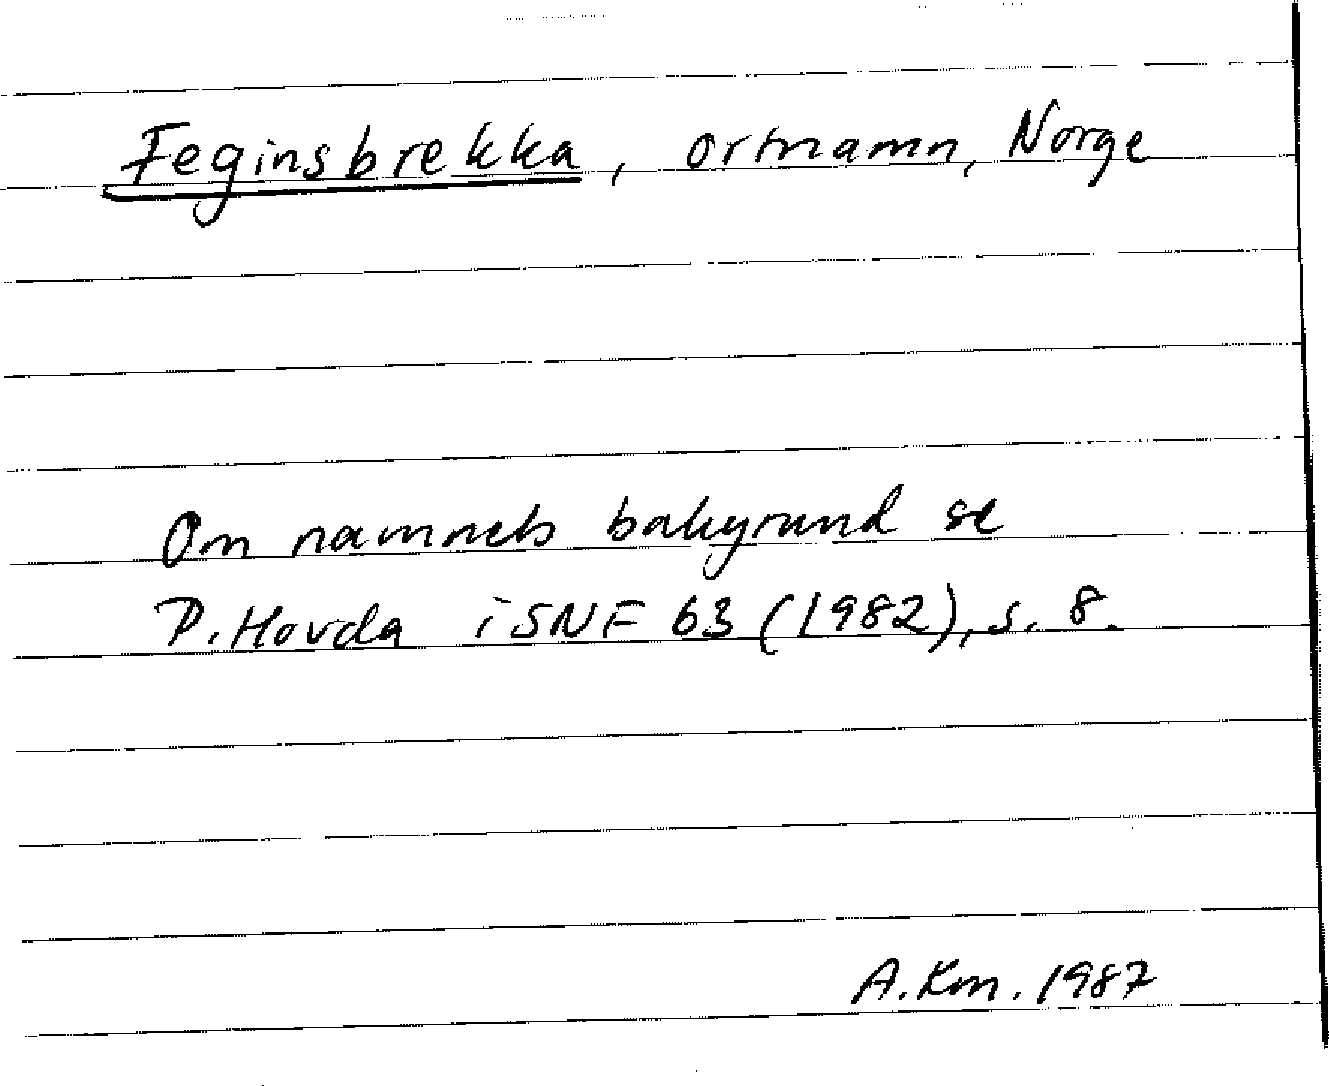 Feginsbrekka, ortnamn, Norge
Om namnets bakgrund se
P. Hovda i SNF 63 (1982), s. 8.
A. Km. 1987